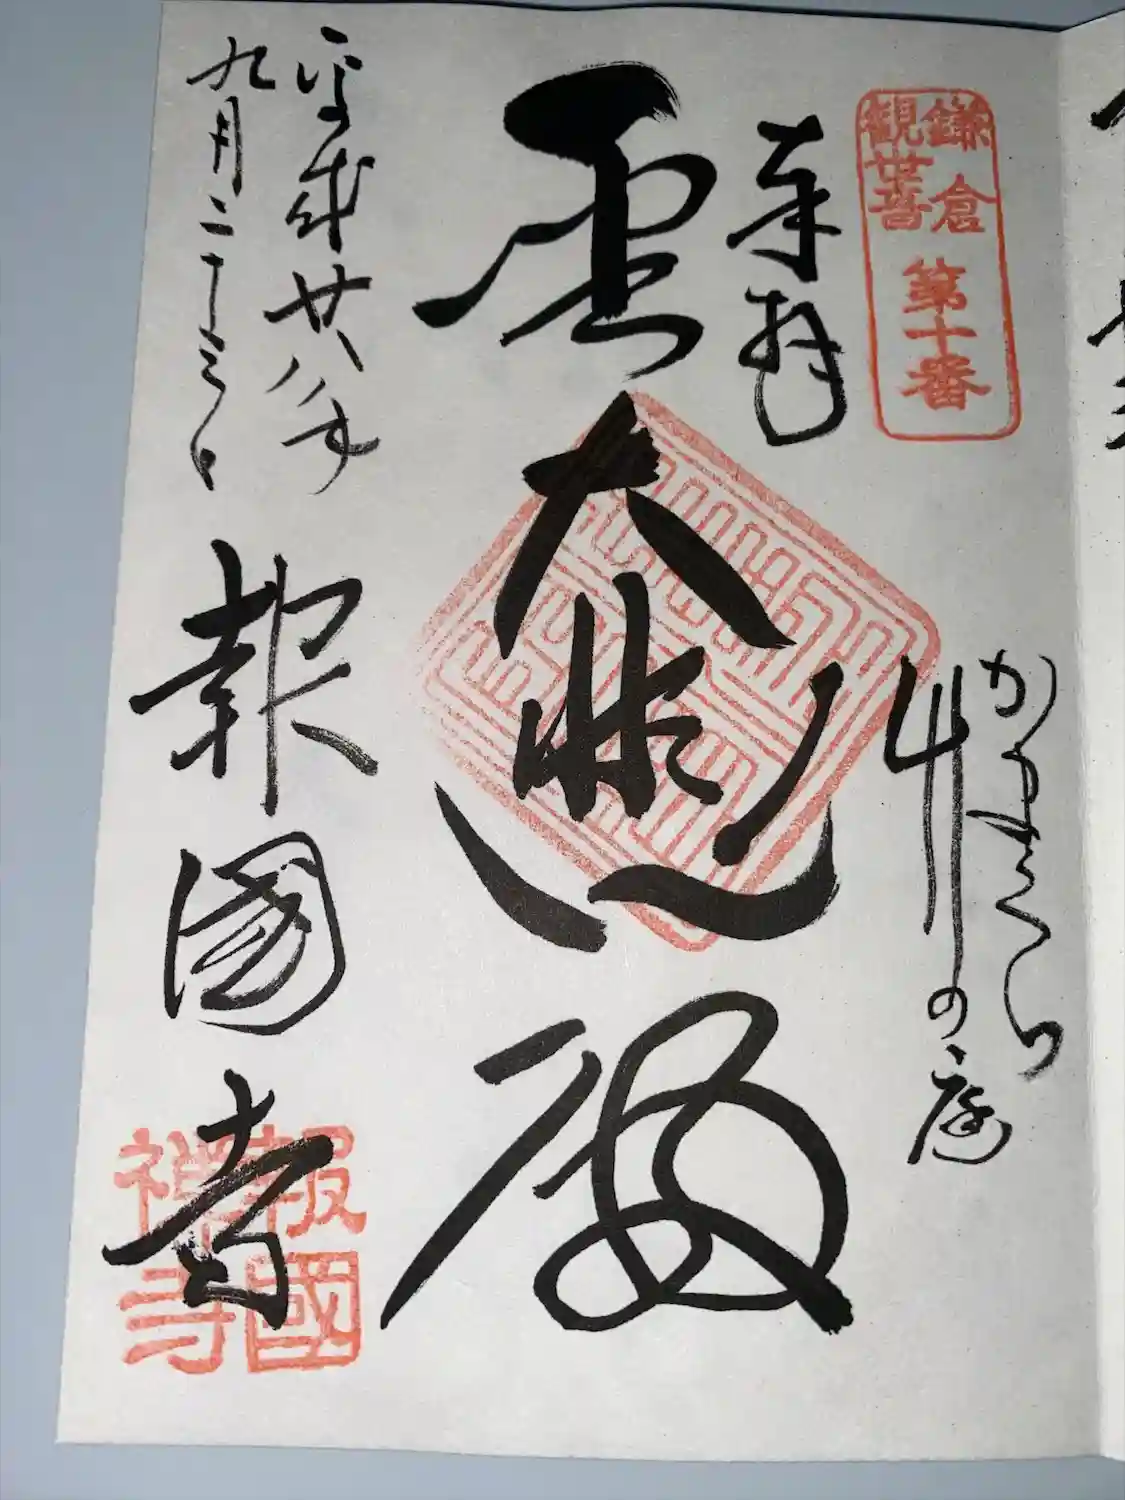 鎌倉
観世音
第十番
奉拝
かまくら
竹の庭
聖大悲殿
平成廿八年
九月二十三日
報國寺
報國
禅寺